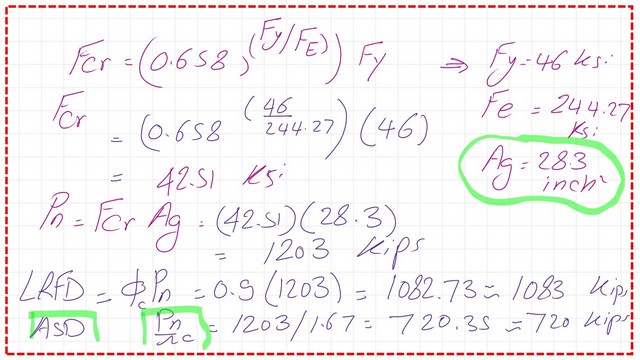 Fcr = (0.658^(Fy/FE)) Fy ⇒ Fy = 46 Ksi
Fe = 244.27 Ksi
Fcr = (0.658^(46/244.27)) (46)
= 42.51 Ksi
Ag = 28.3 inch²
Pn = Fcr Ag = (42.51)(28.3)
= 1203 Kips
LRFD = ϕc Pn = 0.9 (1203) = 1082.73 ≈ 1083 Kips
ASD Pn/Ωc = 1203/1.67 = 720.35 ≈ 720 Kips